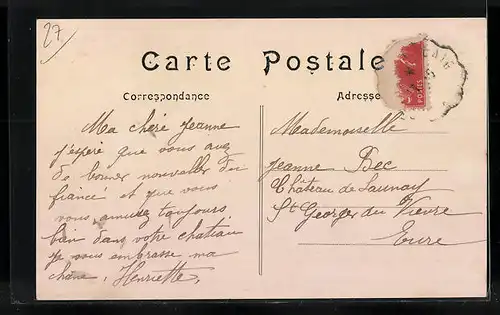 27
Carte Postale
Correspondance
Adresse
Ma chère Jeanne
j'espère que vous avez
de bonnes nouvelles du
fiancé et que vous
vous amusez toujours
bien dans votre chateau
je vous embrasse ma
chère, Henriette,
Mademoiselle
Jeanne Bec
Château de Launay
St Georges du Vievre
Eure
POSTES